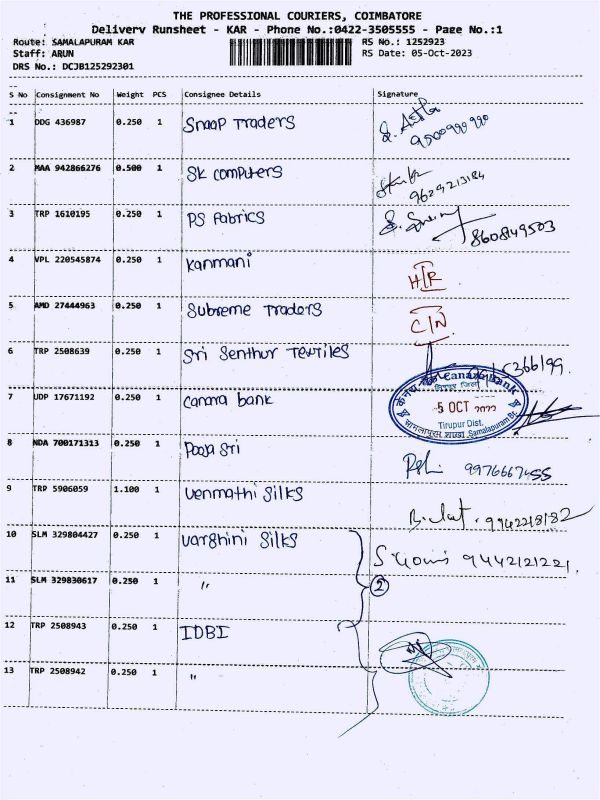 THE PROFESSIONAL COURIERS, COIMBATORE
Delivery Runsheet - KAR - Phone No.:0422-3505555 - Page No.:1
Route: SAMALAPURAM KAR
Staff: ARUN
DRS No.: DCJB125292301
RS No.: 1252923
RS Date: 05-Oct-2023
S No Consignment No Weight PCS Consignee Details Signature
1 DDG 436987 0.250 1 Snaap Traders
2 MAA 942866276 0.500 1 SK computers 9629213184
3 TRP 1610195 0.250 1 PS Fabrics 8608149503
4 VPL 220545874 0.250 1 Kanmani H/R
5 AMD 27444963 0.250 1 Subreme Traders C/N
6 TRP 2508639 0.250 1 Sri Senthur Textiles
7 UDP 17671192 0.250 1 Canara bank
Canara Bank
5 OCT
Tirupur Dist.
Samalapuram Br.
8 NDA 700171313 0.250 1 Pooja Sri 9976667455
9 TRP 5906059 1.100 1 Venmathi Silks 9942218182
10 SLM 329804427 0.250 1 Varshini Silks 9442121221
11 SLM 329830617 0.250 1 " 2
12 TRP 2508943 0.250 1 IDBI
13 TRP 2508942 0.250 1 "